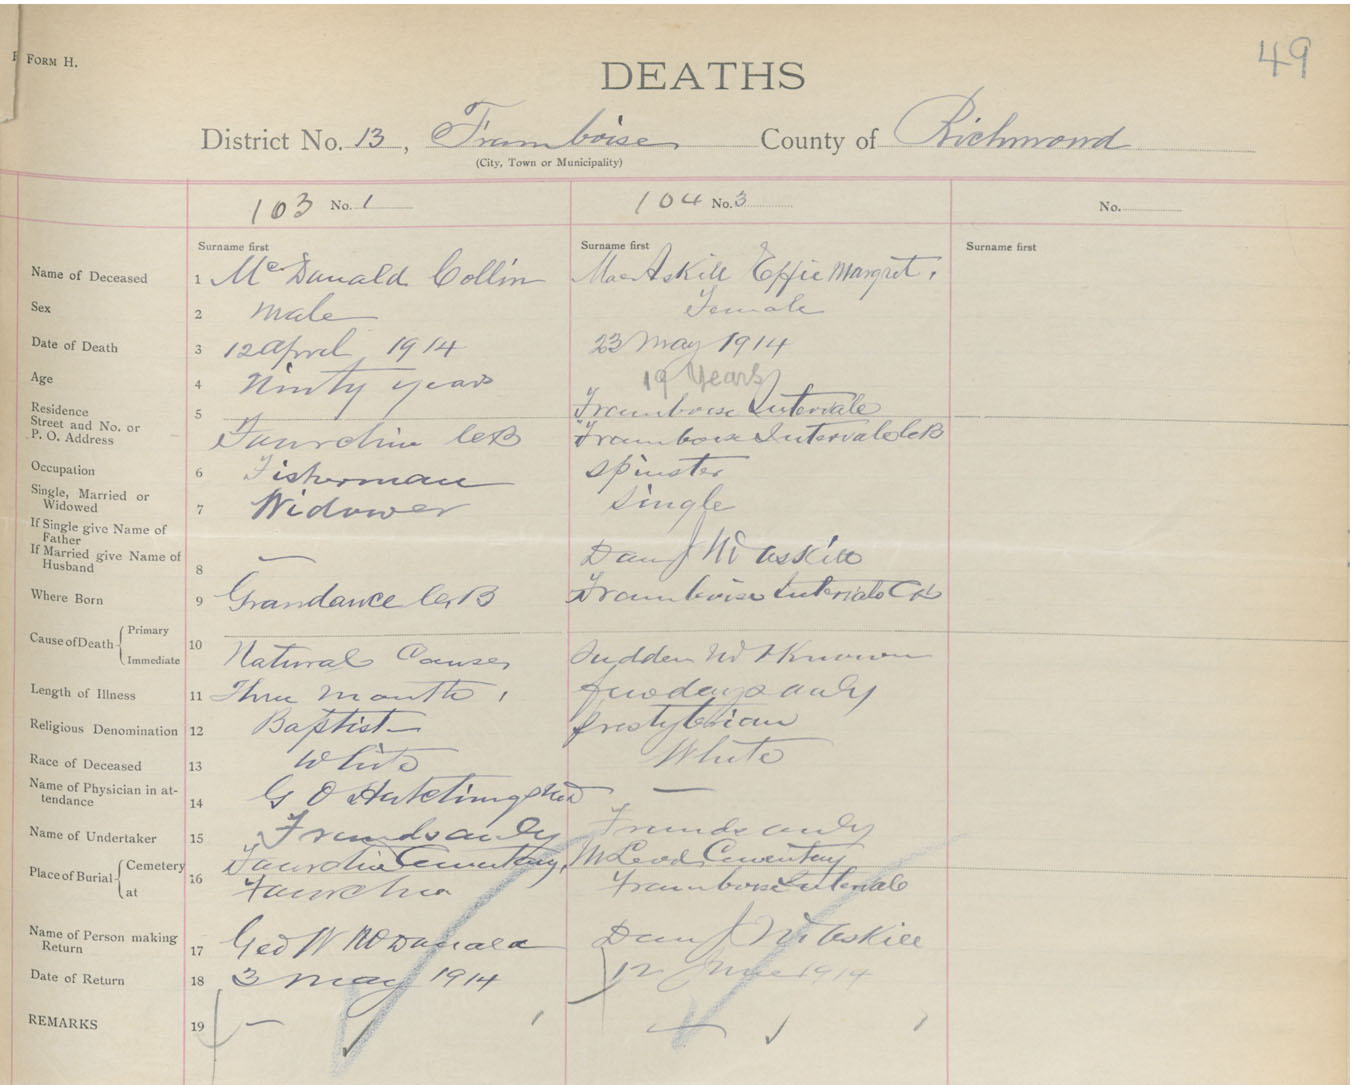 FORM H.
49
DEATHS
District No. 13, Framboise County of Richmond
(City, Town or Municipality)
103 No. 1 104 No. 3 No.
Surname first Surname first Surname first
Name of Deceased 1 McDonald Collin MacAskill Effie Margret.
Sex 2 male Female
Date of Death 3 12 april 1914 23 May 1914
Age 4 Ninty years 19 Years
Residence 5 Framboise Intervale
Street and No. or
P. O. Address Fourchie C.B Framboise Intervale C B
Occupation 6 Fisherman Spinster
Single, Married or
Widowed 7 Widower Single
If Single give Name of
Father
If Married give Name of
Husband 8 — Dan J McAskill
Where Born 9 Grandance C.B Framboise Intervale CB
Cause of Death Primary 10
Immediate Natural Causes Sudden
Length of Illness 11 Three Months fewdays only
Religious Denomination 12 Baptist Presbyterian
Race of Deceased 13 White White
Name of Physician in at-
tendance 14 G O —
Name of Undertaker 15 Friends only Friends only
Place of Burial Cemetery 16 Fourchie Cementary, McLeod Cementary
at Fourchie Framboise Intervale
Name of Person making
Return 17 Geo W McDonald Dan J McAskill
Date of Return 18 3 may 1914 12 June 1914
REMARKS 19 — —